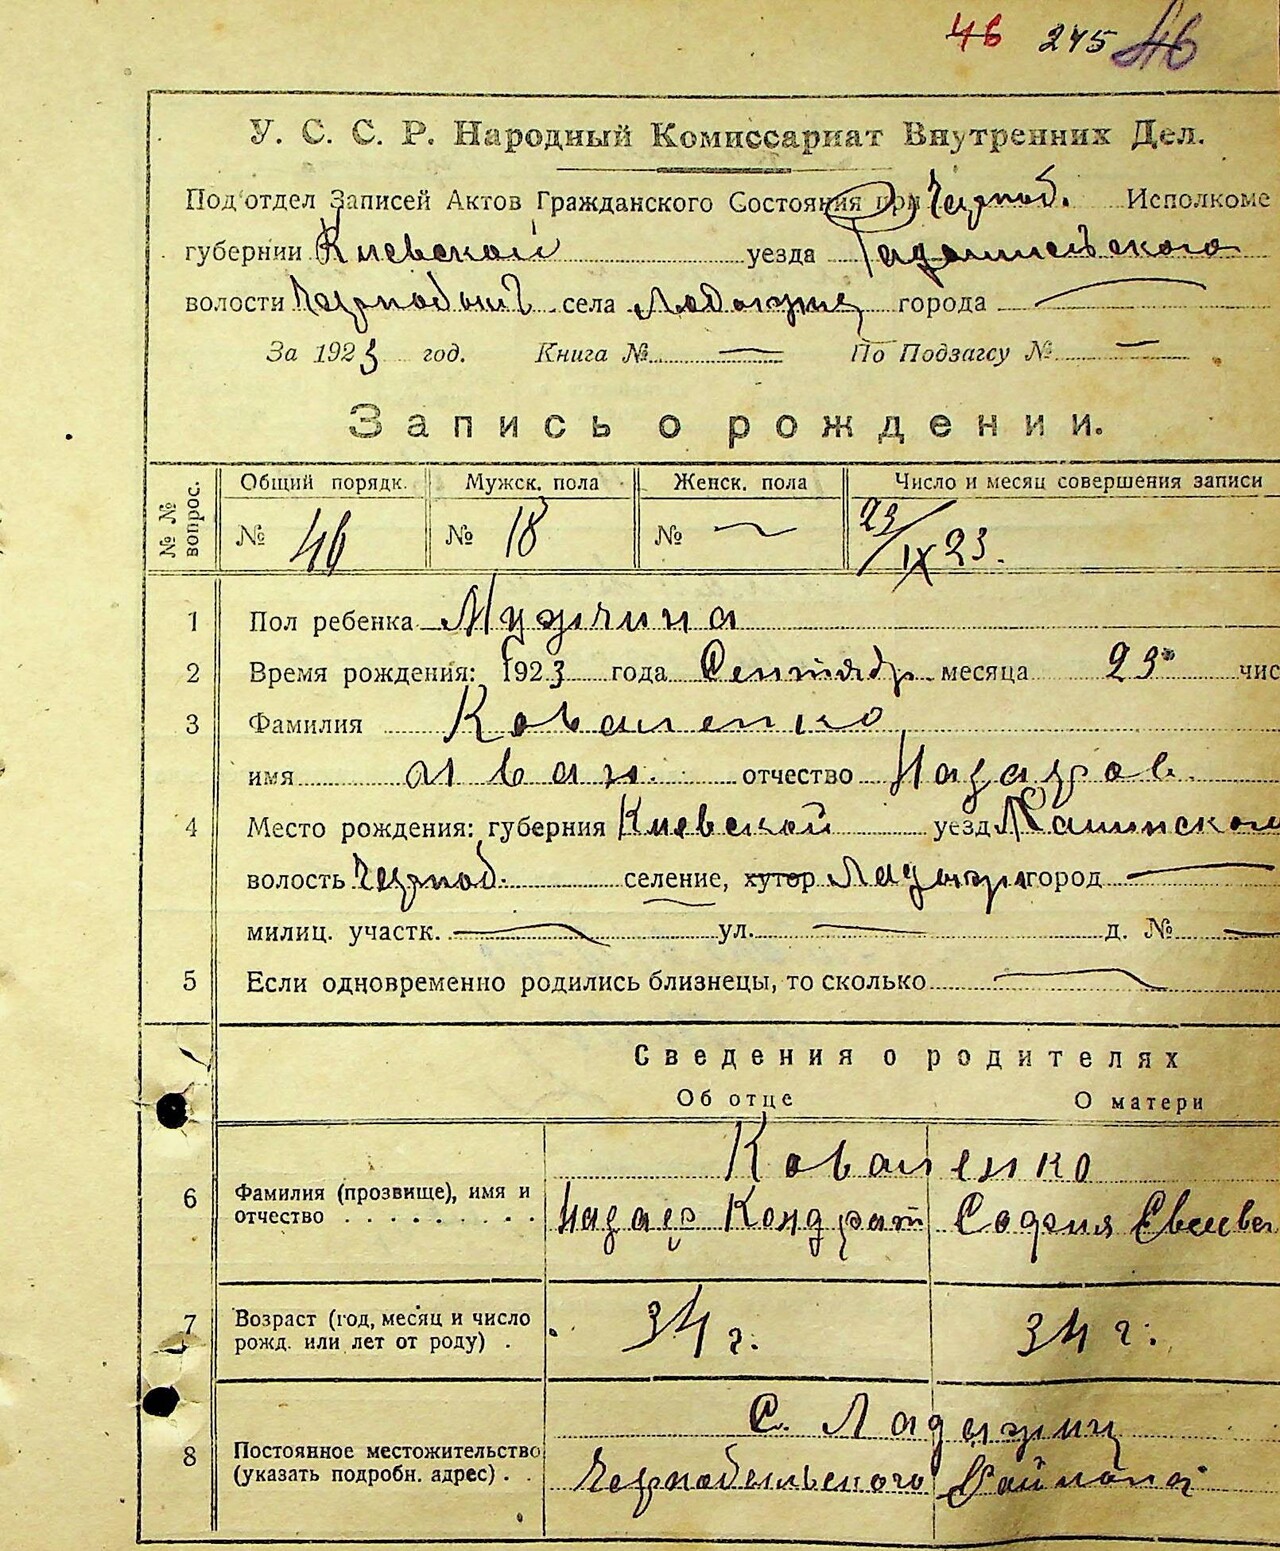 46 275 46
У. С. С. Р. Народный Комиссариат Внутренних Дел.
Под'отдел Записей Актов Гражданского Состояния при Черноб. Исполкоме
губернии Киевской уезда Радомысльского
волости села города
За 1923 год. Книга № — По Подзагсу № —
Запись о рождении.
№ № вопрос. Общий порядк. Мужск. пола Женск. пола Число и месяц совершения записи
№ 46 № 18 № — 23/IX 23.
1 Пол ребенка Мужчина
2 Время рождения: 1923 года Сентябр месяца 23 чис
3 Фамилия Коваленко
имя Иван отчество Назаров.
4 Место рождения: губерния Киевской уезд
волость Черноб. селение, хутор город —
милиц. участк. — ул. — д. № —
5 Если одновременно родились близнецы, то сколько —
Сведения о родителях
Об отце О матери
Коваленко
6 Фамилия (прозвище), имя и
отчество . . . . . . . . . . Назар Кондрат София
7 Возраст (год, месяц и число
рожд. или лет от роду) . 34 г. 34 г.
С. Ладыжич
8 Постоянное местожительство
(указать подробн. адрес) . . Чернобыльского Района